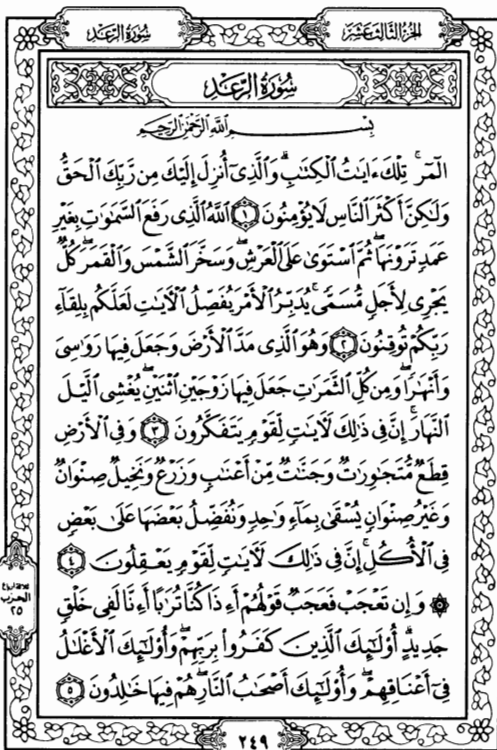 الجزء الثالث عشر
سورة الرعد
سورة الرعد
بسم الله الرحمن الرحيم
الٓمٓر ۚ تِلْكَ ءَايَٰتُ ٱلْكِتَٰبِ ۗ وَٱلَّذِىٓ أُنزِلَ إِلَيْكَ مِن رَّبِّكَ ٱلْحَقُّ
وَلَٰكِنَّ أَكْثَرَ ٱلنَّاسِ لَا يُؤْمِنُونَ ١ ٱللَّهُ ٱلَّذِى رَفَعَ ٱلسَّمَٰوَٰتِ بِغَيْرِ
عَمَدٍ تَرَوْنَهَا ۖ ثُمَّ ٱسْتَوَىٰ عَلَى ٱلْعَرْشِ ۖ وَسَخَّرَ ٱلشَّمْسَ وَٱلْقَمَرَ ۖ كُلٌّ
يَجْرِى لِأَجَلٍ مُّسَمًّى ۚ يُدَبِّرُ ٱلْأَمْرَ يُفَصِّلُ ٱلْءَايَٰتِ لَعَلَّكُم بِلِقَآءِ
رَبِّكُمْ تُوقِنُونَ ٢ وَهُوَ ٱلَّذِى مَدَّ ٱلْأَرْضَ وَجَعَلَ فِيهَا رَوَٰسِىَ
وَأَنْهَٰرًا ۖ وَمِن كُلِّ ٱلثَّمَرَٰتِ جَعَلَ فِيهَا زَوْجَيْنِ ٱثْنَيْنِ ۖ يُغْشِى ٱلَّيْلَ
ٱلنَّهَارَ ۚ إِنَّ فِى ذَٰلِكَ لَءَايَٰتٍ لِّقَوْمٍ يَتَفَكَّرُونَ ٣ وَفِى ٱلْأَرْضِ
قِطَعٌ مُّتَجَٰوِرَٰتٌ وَجَنَّٰتٌ مِّنْ أَعْنَٰبٍ وَزَرْعٌ وَنَخِيلٌ صِنْوَانٌ
وَغَيْرُ صِنْوَانٍ يُسْقَىٰ بِمَآءٍ وَٰحِدٍ وَنُفَضِّلُ بَعْضَهَا عَلَىٰ بَعْضٍ
فِى ٱلْأُكُلِ ۚ إِنَّ فِى ذَٰلِكَ لَءَايَٰتٍ لِّقَوْمٍ يَعْقِلُونَ ٤
۞ وَإِن تَعْجَبْ فَعَجَبٌ قَوْلُهُمْ أَءِذَا كُنَّا تُرَٰبًا أَءِنَّا لَفِى خَلْقٍ
جَدِيدٍ ۗ أُو۟لَٰٓئِكَ ٱلَّذِينَ كَفَرُوا۟ بِرَبِّهِمْ ۖ وَأُو۟لَٰٓئِكَ ٱلْأَغْلَٰلُ
فِىٓ أَعْنَاقِهِمْ ۖ وَأُو۟لَٰٓئِكَ أَصْحَٰبُ ٱلنَّارِ ۖ هُمْ فِيهَا خَٰلِدُونَ ٥
الحزب
٢٥
٢٤٩